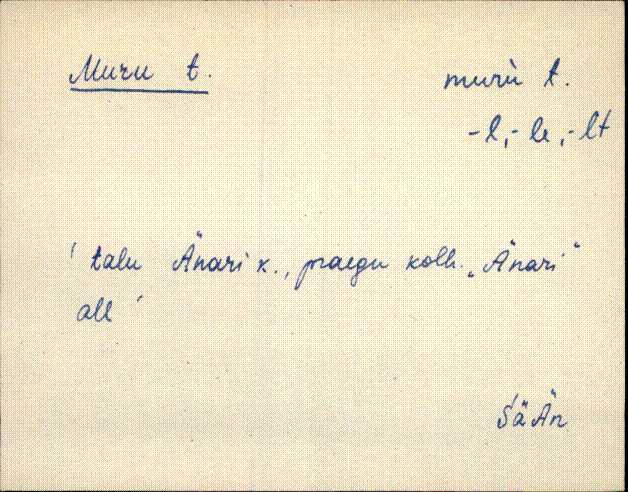 Muru t.
murù t.
-l, -le, -lt
' talu Änari k., praegu kolh. „Änari"
all '
SäÄn